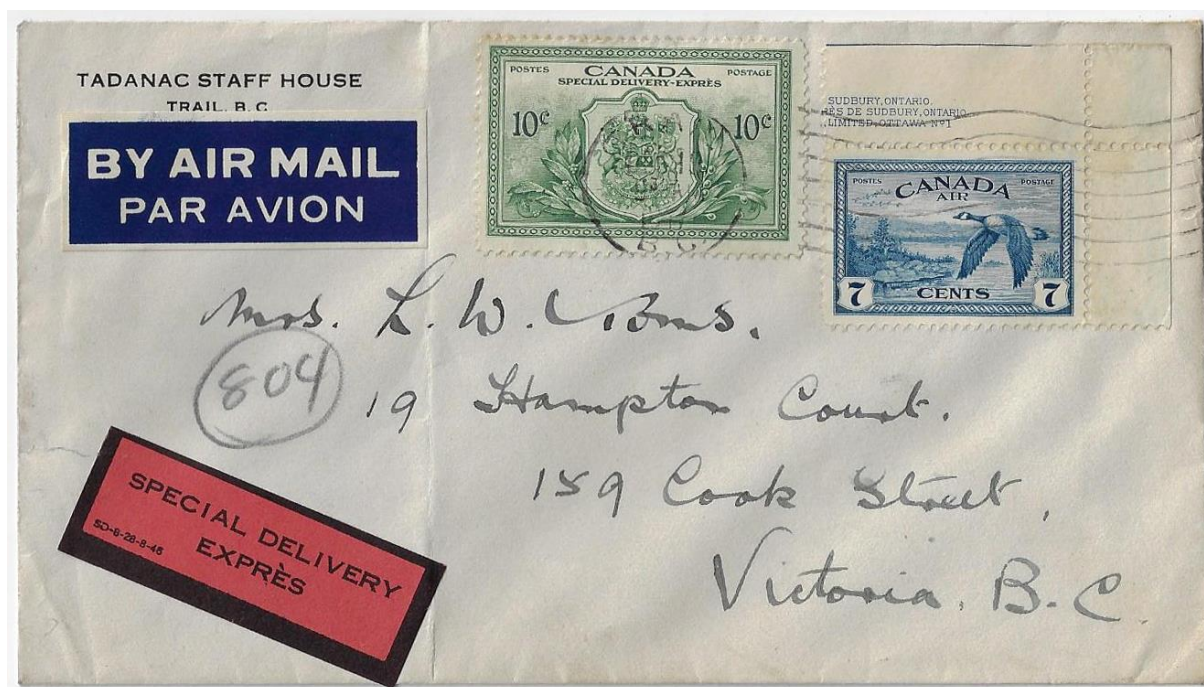 TADANAC STAFF HOUSE
TRAIL, B.C.
BY AIR MAIL
PAR AVION
POSTES CANADA POSTAGE
SPECIAL DELIVERY-EXPRÈS
10c 10c
B.C.
SUDBURY, ONTARIO.
RÈS DE SUDBURY, ONTARIO
LIMITED, OTTAWA Nº1
POSTES CANADA POSTAGE
AIR
7 CENTS 7
Mrs. L. W.
804
19 Hampton Court.
159 Cook Street,
Victoria, B.C.
SPECIAL DELIVERY
SD-8-28-8-45 EXPRÈS